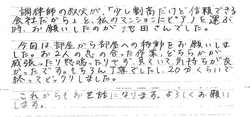 調律師の叔父が、「少し割高だけど信頼できる
会社だからね」と、私のマンションにピアノを運ぶ
時、お願いしたのが池田さんでした。
今回は部屋から部屋への移動をお願いしま
した。お二人の息の合った作業、どちらかが
威張ったり怒鳴ったりせず、見ていて気持ちが良
かったです。もちろん丁寧でしたし、20分くらいで
終ってビックリしました。
これからもお世話になります。よろしくお願い
します。